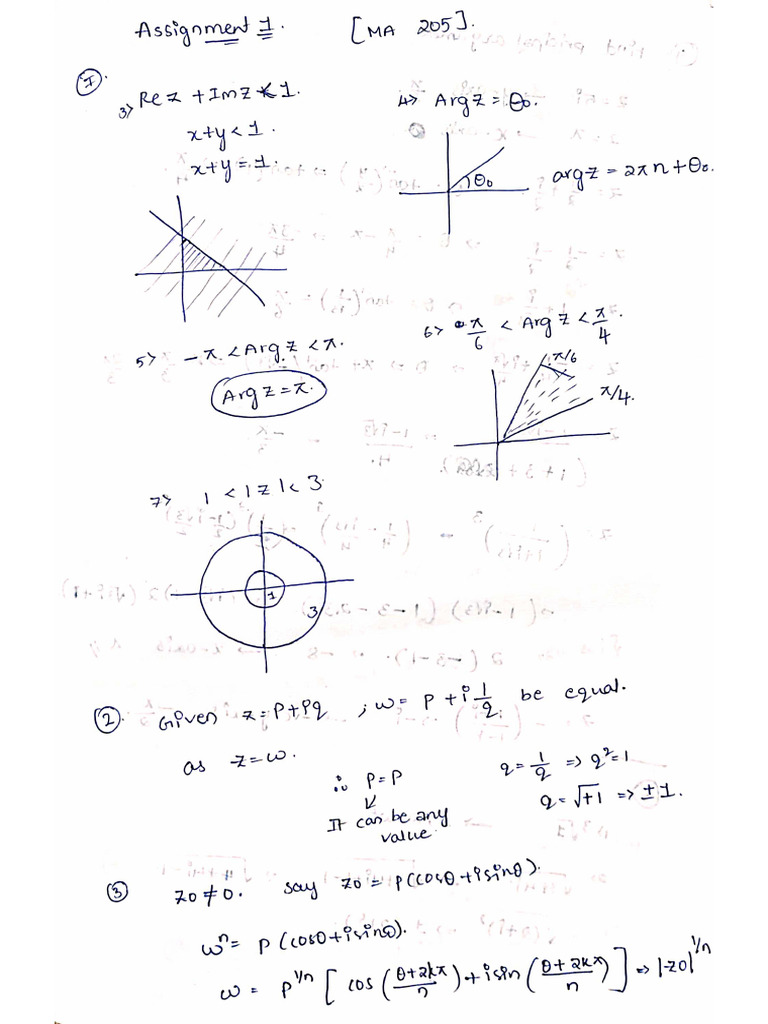 Assignment 1. [MA 205].
①.
3> Re z + Im z < 1.
x+y < 1.
x+y = 1.
4> Arg z = θ₀.
θ₀
arg z = 2π n + θ₀.
5> -π < Arg z < π.
Arg z = π.
6> π/6 < Arg z < π/4.
π/6
π/4.
7> 1 < |z| < 3.
1
3
②. Given z = p+iq ; w = p + i 1/q be equal.
as z = w.
∴ p = p
It can be any
value.
q = 1/q => q² = 1
q = √+1 => ± 1.
③ z0 ≠ 0. say z0 = p(cosθ + isinθ).
wⁿ = p (cosθ + isinθ).
w = p^1/n [ cos (θ+2kπ/n) + isin (θ+2kπ/n) ] => |z0|^1/n